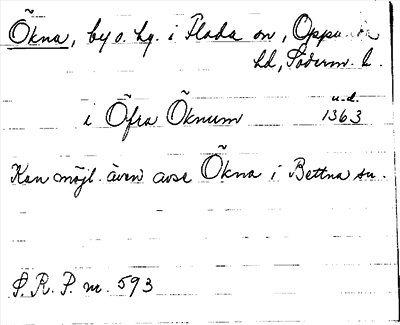 Ökna, by o. hg. i Floda sn, Oppunda
hd, Söderm. l.
u.d.
i Öfra Öknum 1363
Kan möjl. även avse Ökna i Bettna sn.
S. R. P. nr. 593